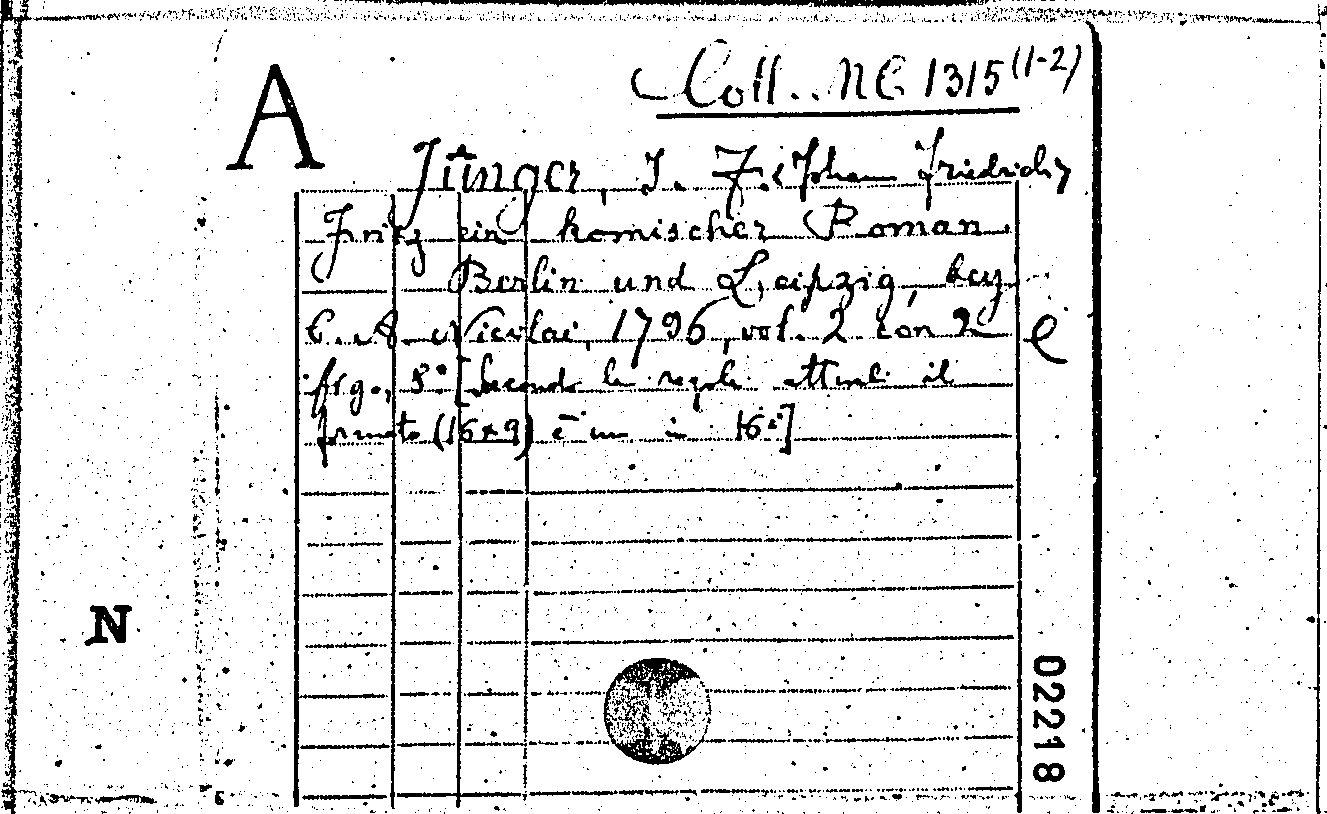 A
Coll. NC 1315 (1-2)
Jünger, J. F. <Johann Friedrich>
Fritz ein komischer Roman.
Berlin und Leipzig, bey
C. A. Nicolai, 1796, vol. 2 con 2
frg., 8° [Secondo le regole attuali il
formato (16x9) è un in 16°]
N
02218